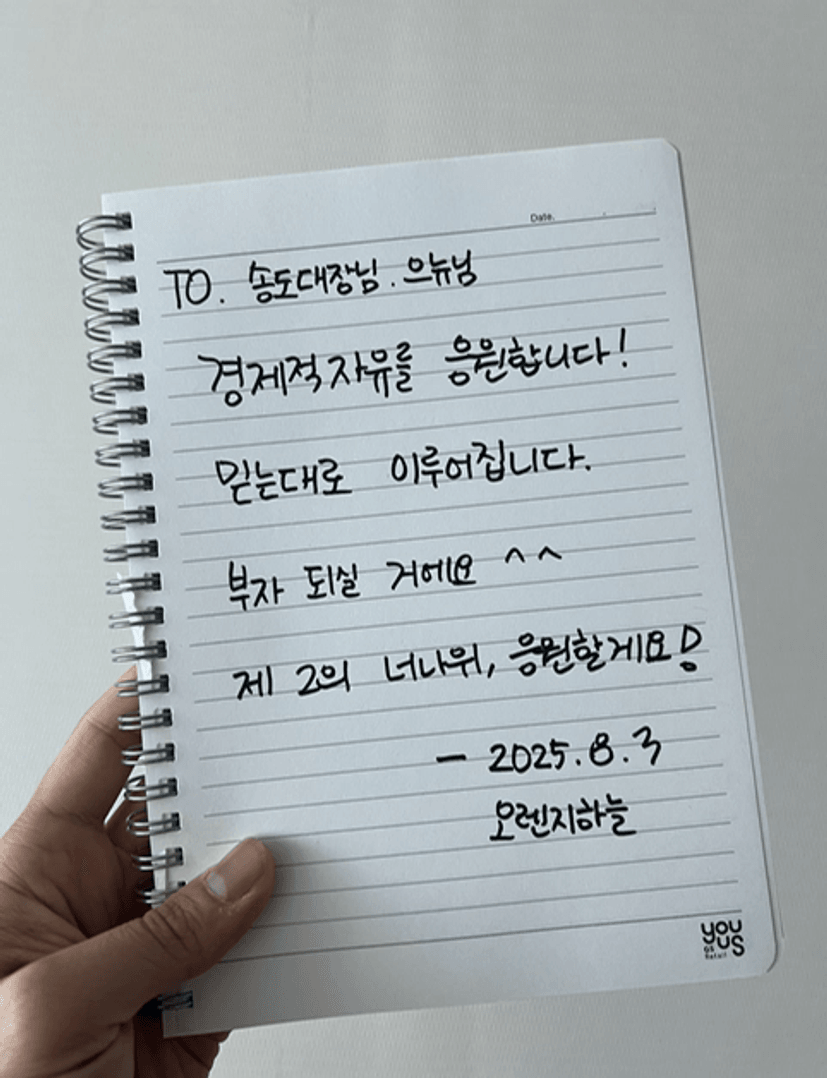 Date.
TO. 송도대장님. 으뉴님
경제적자유를 응원합니다!
믿는대로 이루어집니다.
부자 되실 거에요 ^^
제 2의 너나위, 응원할게요!
- 2025.8.3
오렌지하늘
YOU
US
GS Retail